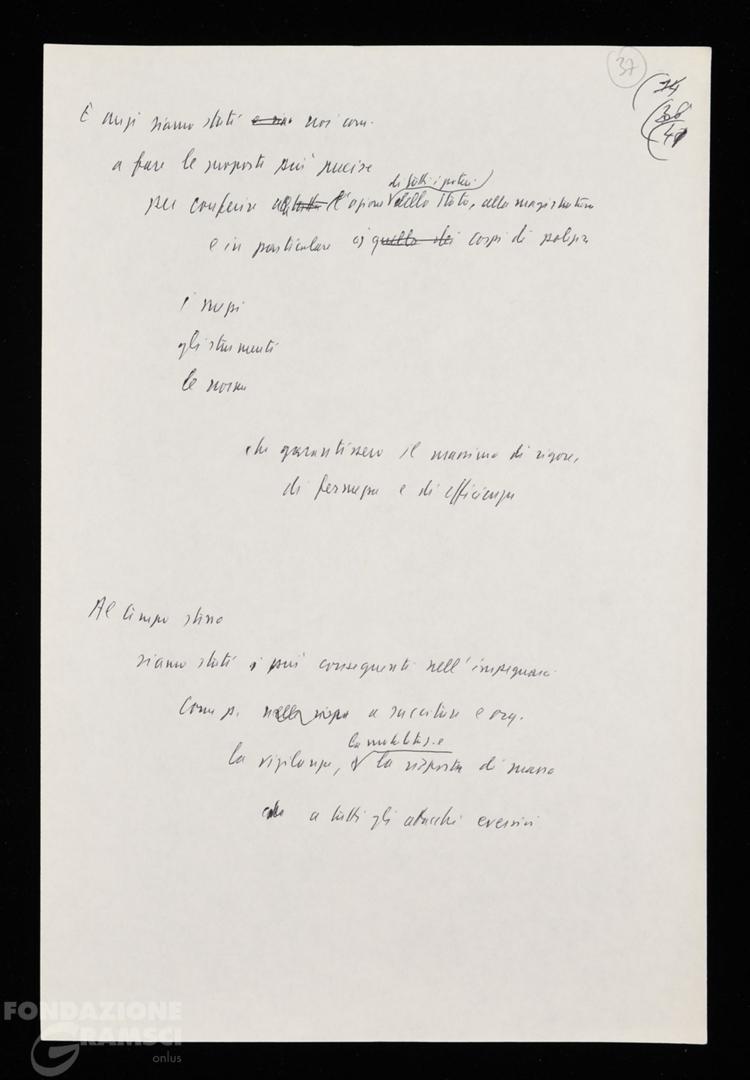 37
38
E anzi siamo stati noi com.
a fare le proposte più precise
di tutti i poteri
per conferire l'azione dello Stato, alla magistratura
e in particolare ai quello dei corpi di polizia
i mezzi
gli strumenti
le norme
che garantissero il massimo di rigore,
di fermezza e di efficienza
Al tempo stesso
siamo stati i più conseguenti nell'impegnarci
come p. nella a suscitare e org.
la mobilitaz. e
la vigilanza, la risposta di massa
a tutti gli attacchi eversivi
FONDAZIONE
GRAMSCI
onlus